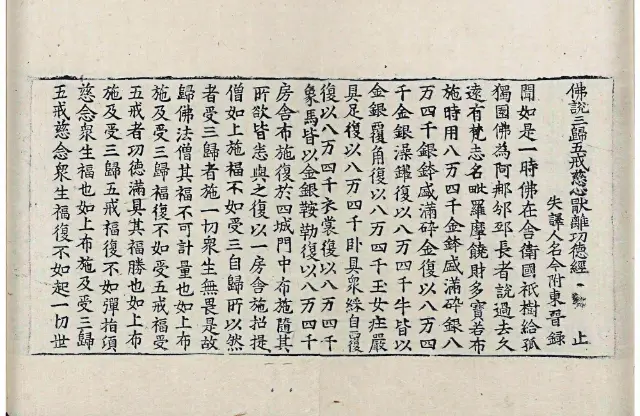 佛說三歸五戒慈心猒離功德經 止
失譯人名今附東晉録
聞如是一時佛在舍衛國祇樹給孤
獨園佛為阿那邠邸長者說過去久
遠有梵志名毗羅摩饒財多寶若布
施時用八万四千金鉢盛滿碎銀八
万四千銀鉢盛滿碎金復以八万四
千金銀澡鑵復以八万四千牛皆以
金銀覆角復以八万四千玉女庄嚴
具足復以八万四千卧具衆綵自覆
復以八万四千衣裳復以八万四千
象馬皆以金銀鞍勒復以八万四千
房舍布施復於四城門中布施隨其
所欲皆悉與之復以一房舍施招提
僧如上施福不如受三自歸所以然
者受三歸者施一切衆生無畏是故
歸佛法僧其福不可計量也如上布
施及受三歸福復不如受五戒福受
五戒者功德滿具其福勝也如上布
施及受三歸五戒福復不如彈指頃
慈念衆生福也如上布施及受三歸
五戒慈念衆生福復不如起一切世